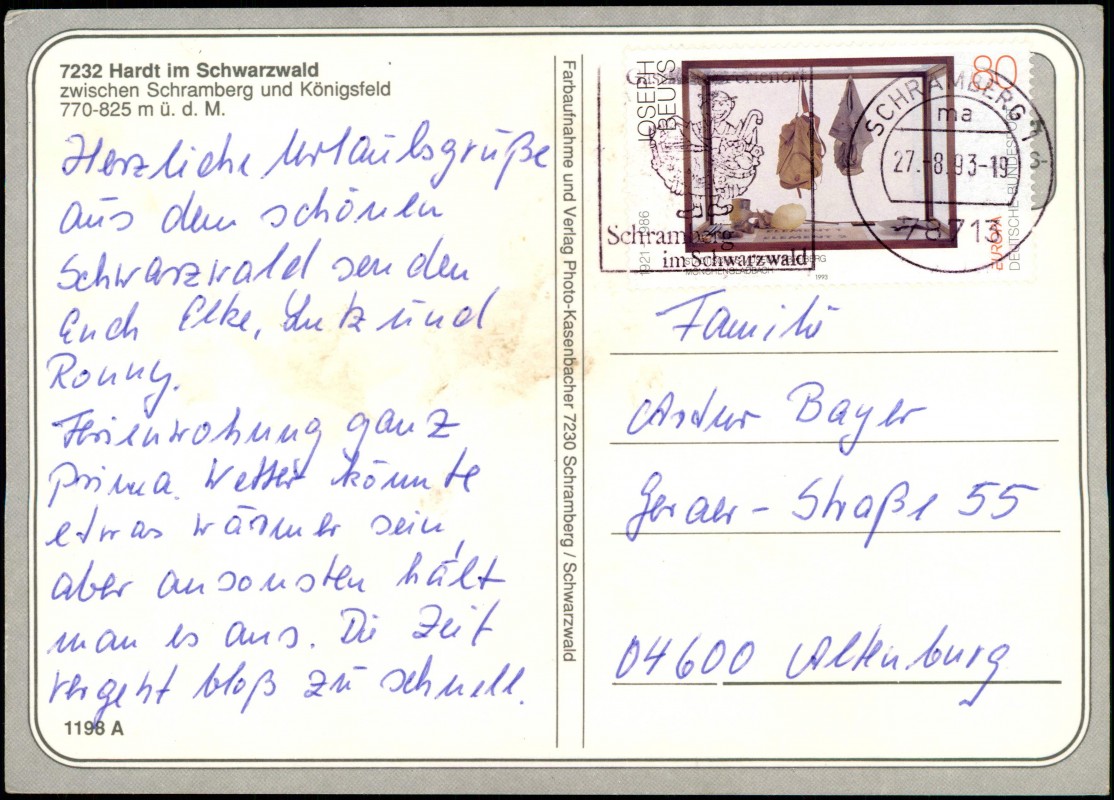 7232 Hardt im Schwarzwald
zwischen Schramberg und Königsfeld
770-825 m ü. d. M.
Herzliche Urlaubsgrüße
aus dem schönen
Schwarzwald senden
Euch Elke, Lutz und
Ronny.
Ferienwohnung ganz
prima. Wetter könnte
etwas wärmer sein,
aber ansonsten hält
man es aus. Die Zeit
vergeht bloß zu schnell.
1198 A
Farbaufnahme und Verlag Photo-Kasenbacher 7230 Schramberg / Schwarzwald
JOSEPH
BEUYS
1921-1986
80
DEUTSCHE BUNDESPOST
EUROPA
MÖNCHENGLADBACH
1993
Schramberg
im Schwarzwald
SCHRAMBERG 1
ma
27.-8.93-19
78713
Familie
Artur Bayer
Geraer-Straße 55
04600 Altenburg